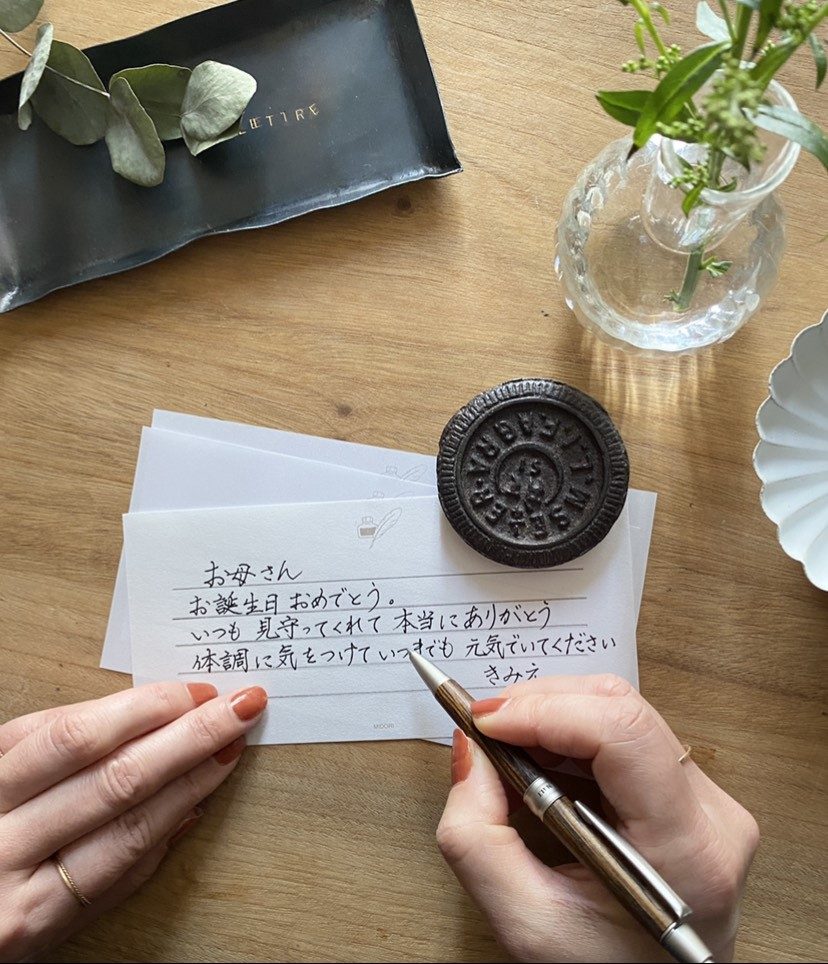 お母さん
お誕生日 おめでとう。
いつも 見守ってくれて 本当に ありがとう
体調に気をつけて いつまでも 元気でいてください
きみえ
MIDORI